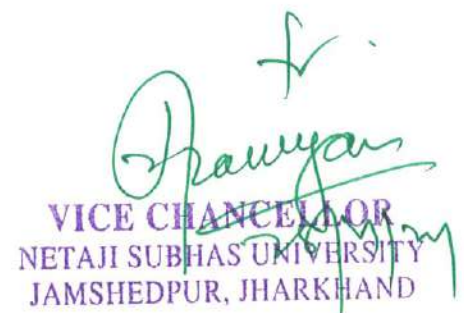 VICE CHANCELLOR
NETAJI SUBHAS UNIVERSITY
JAMSHEDPUR, JHARKHAND